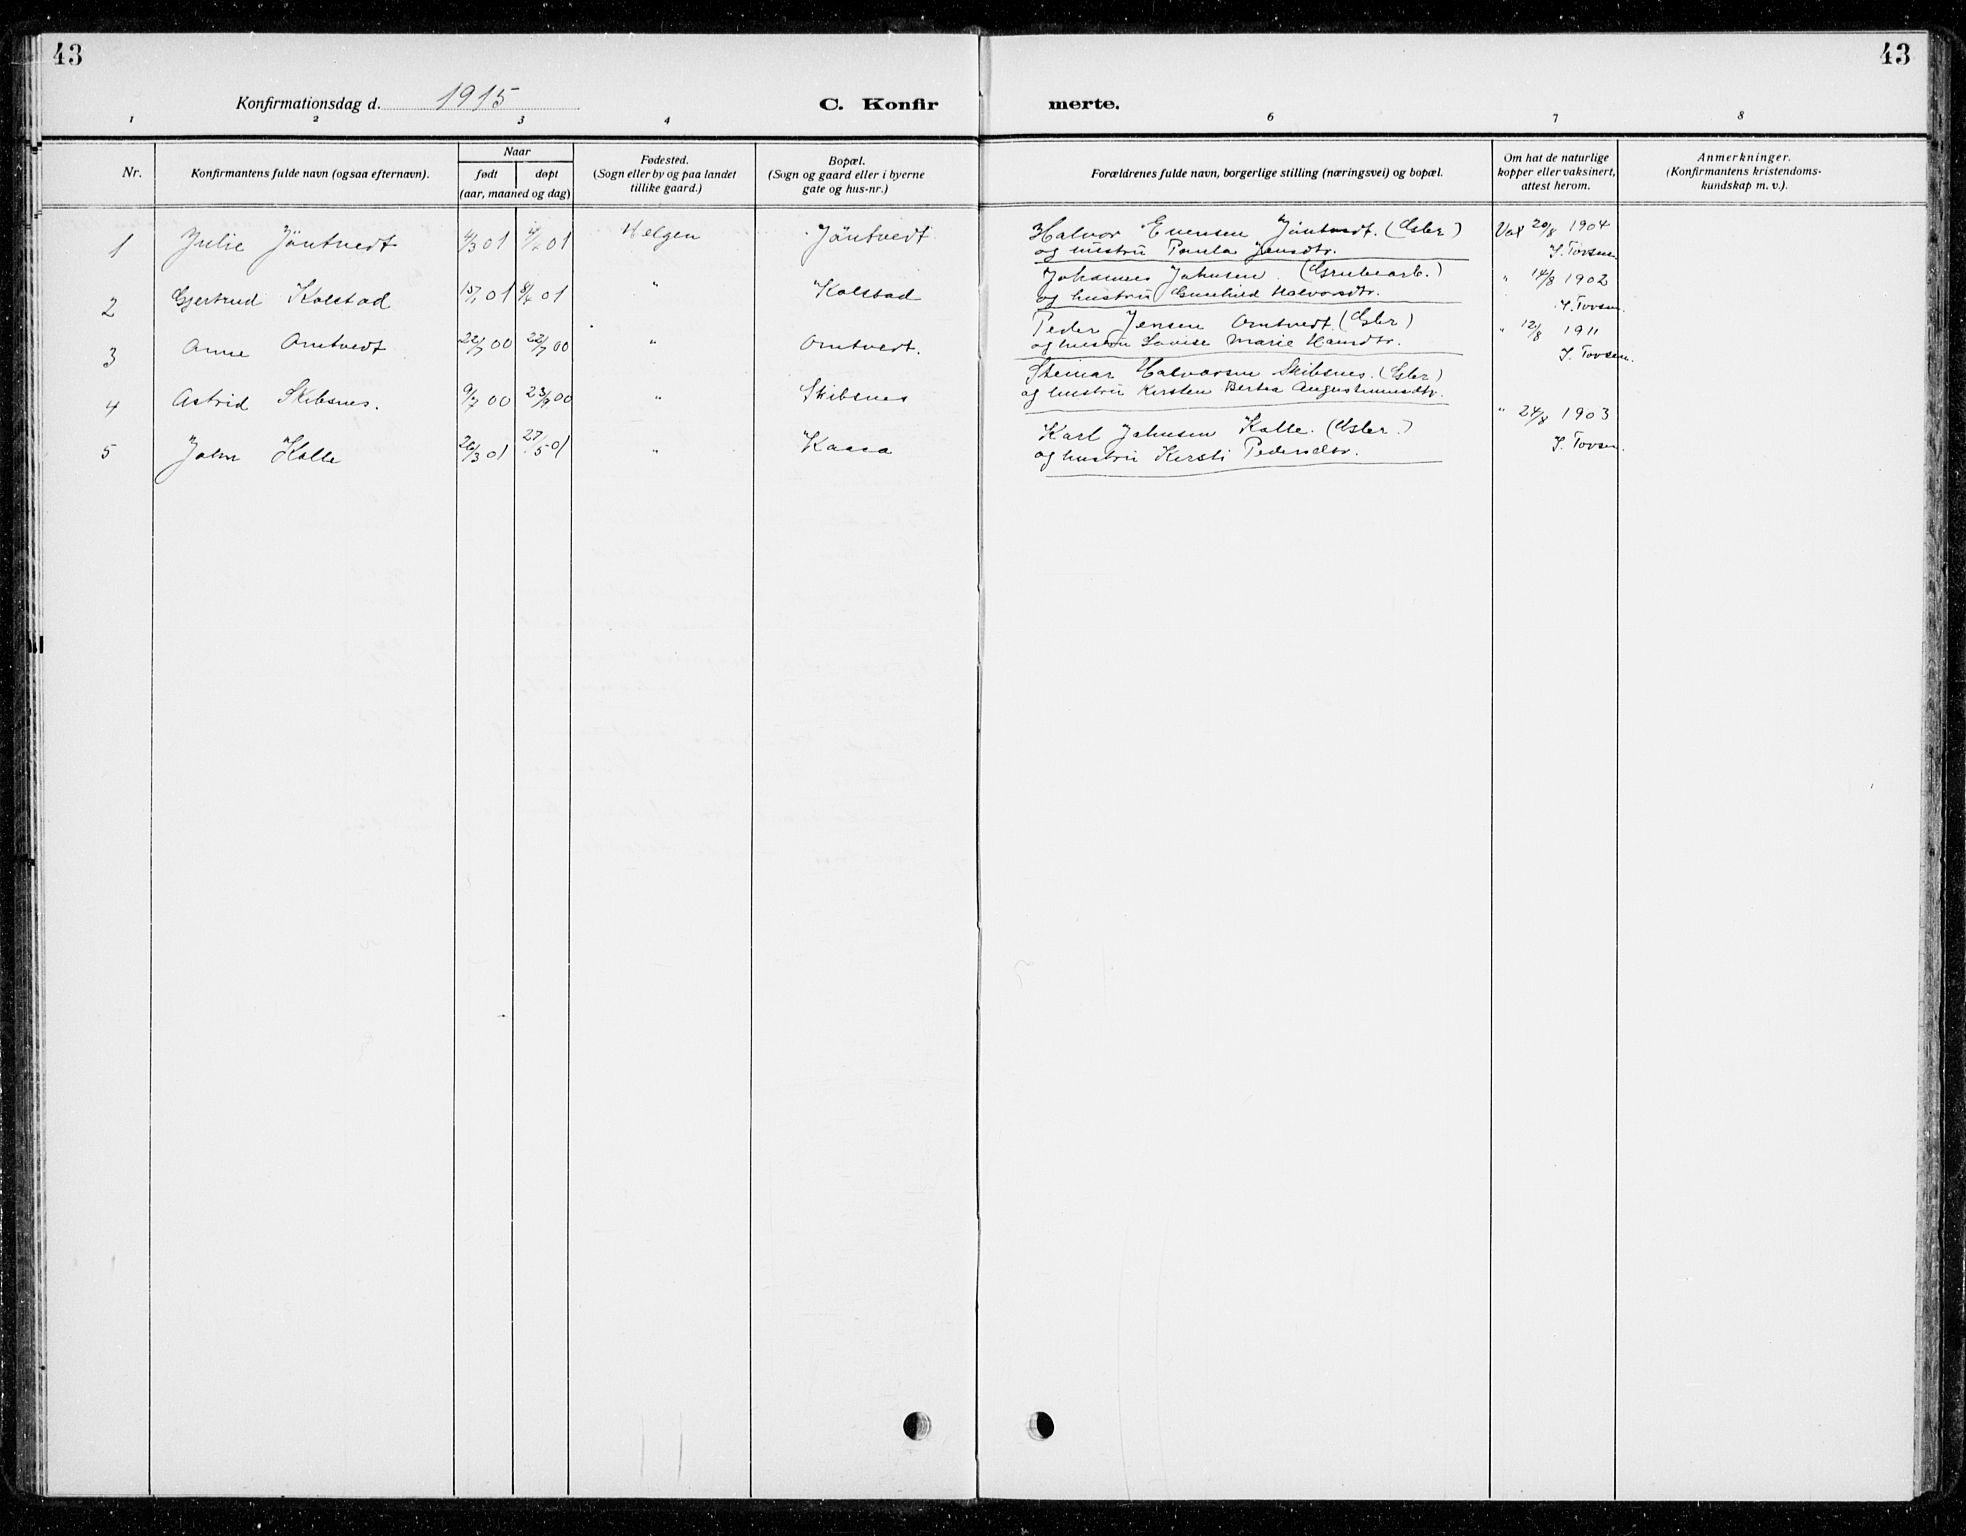 43
43
Konfirmationsdag d. 1915
C. Konfir
merte.
1 2 3 4 6 7 8
Nr.
Konfirmantens fulde navn (ogsaa efternavn).
Naar
født
døpt
(aar, maaned og dag)
Fødested.
(Sogn eller by og paa landet
tillike gaard.)
Bopæl.
(Sogn og gaard eller i byerne
gate og hus-nr.)
Forældrenes fulde navn, borgerlige stilling (næringsvei) og bopæl.
Om hat de naturlige
kopper eller vaksinert,
attest herom.
Anmerkninger.
(Konfirmantens kristendoms-
kundskap m. v.).
1 Julie Jöntvedt 4/3 01 01 Helgen Jöntvedt Halvor Evensen Jöntvedt. (Gbr) Vax 20/8 1904
og hustru Paula Jensdtr. S. Tovsen
2 Gjertrud Kolstad 01 01 " Kolstad Johannes Johnsen. (Grubearb.) " 14/8 1902
og hustru Gunhild Halvorsdtr. S. Tovsen.
3 Anne Omtvedt 22/7 00 00 " Omtvedt. Peder Jensen Omtvedt. (Gbr) " 12/8 1911
og hustru Lovise Marie Hansdtr. S. Tovsen.
4 Astrid Skibsnes. 9/7 00 23/9 00 " Skibsnes Steinar Halvorsen Skibsnes. (Gbr)
og hustru Kirsten Bertea Augustinusdtr.
5 John Kolle 26/3 01 27/5 01 " Kaasa Karl Johnsen Kolle. (Gbr.) " 24/8 1903
og hustru Kirsti Pedersdtr. S. Tovsen.